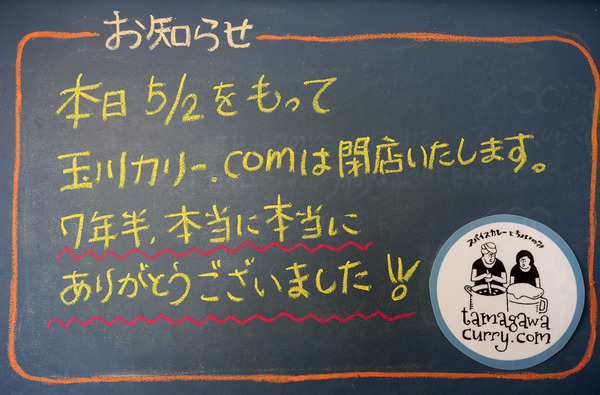 お知らせ
本日 5/2 をもって
玉川カリー.comは閉店いたします。
7年半、本当に本当に
ありがとうございました!!
スパイスカレーとちょいのみ
tamagawa
curry.com